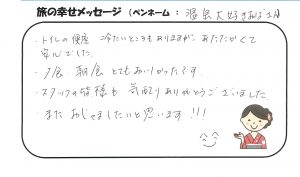 旅の幸せメッセージ (ペンネーム : 温泉大好き
・トイレの便座 冷たいところもありますが、あたたかくて
安心でした。
・夕食 朝食 とてもおいしかったです。
・スタッフの皆様も 気配り ありがとうございました
・また おじゃましたいと思います!!!